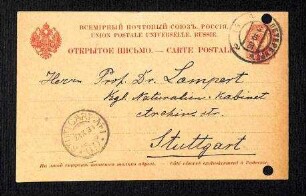 ВСЕМІРНЫЙ ПОЧТОВЫЙ СОЮЗЪ. РОССІЯ.
UNION POSTALE UNIVERSELLE. RUSSIE.
ОТКРЫТОЕ ПИСЬМО. — CARTE POSTALE
Herrn Prof. Dr. Lampert
Kgl. Naturalien-Kabinet
Archivstr.
Stuttgart
Côté réservé exclusivement à l'adresse.